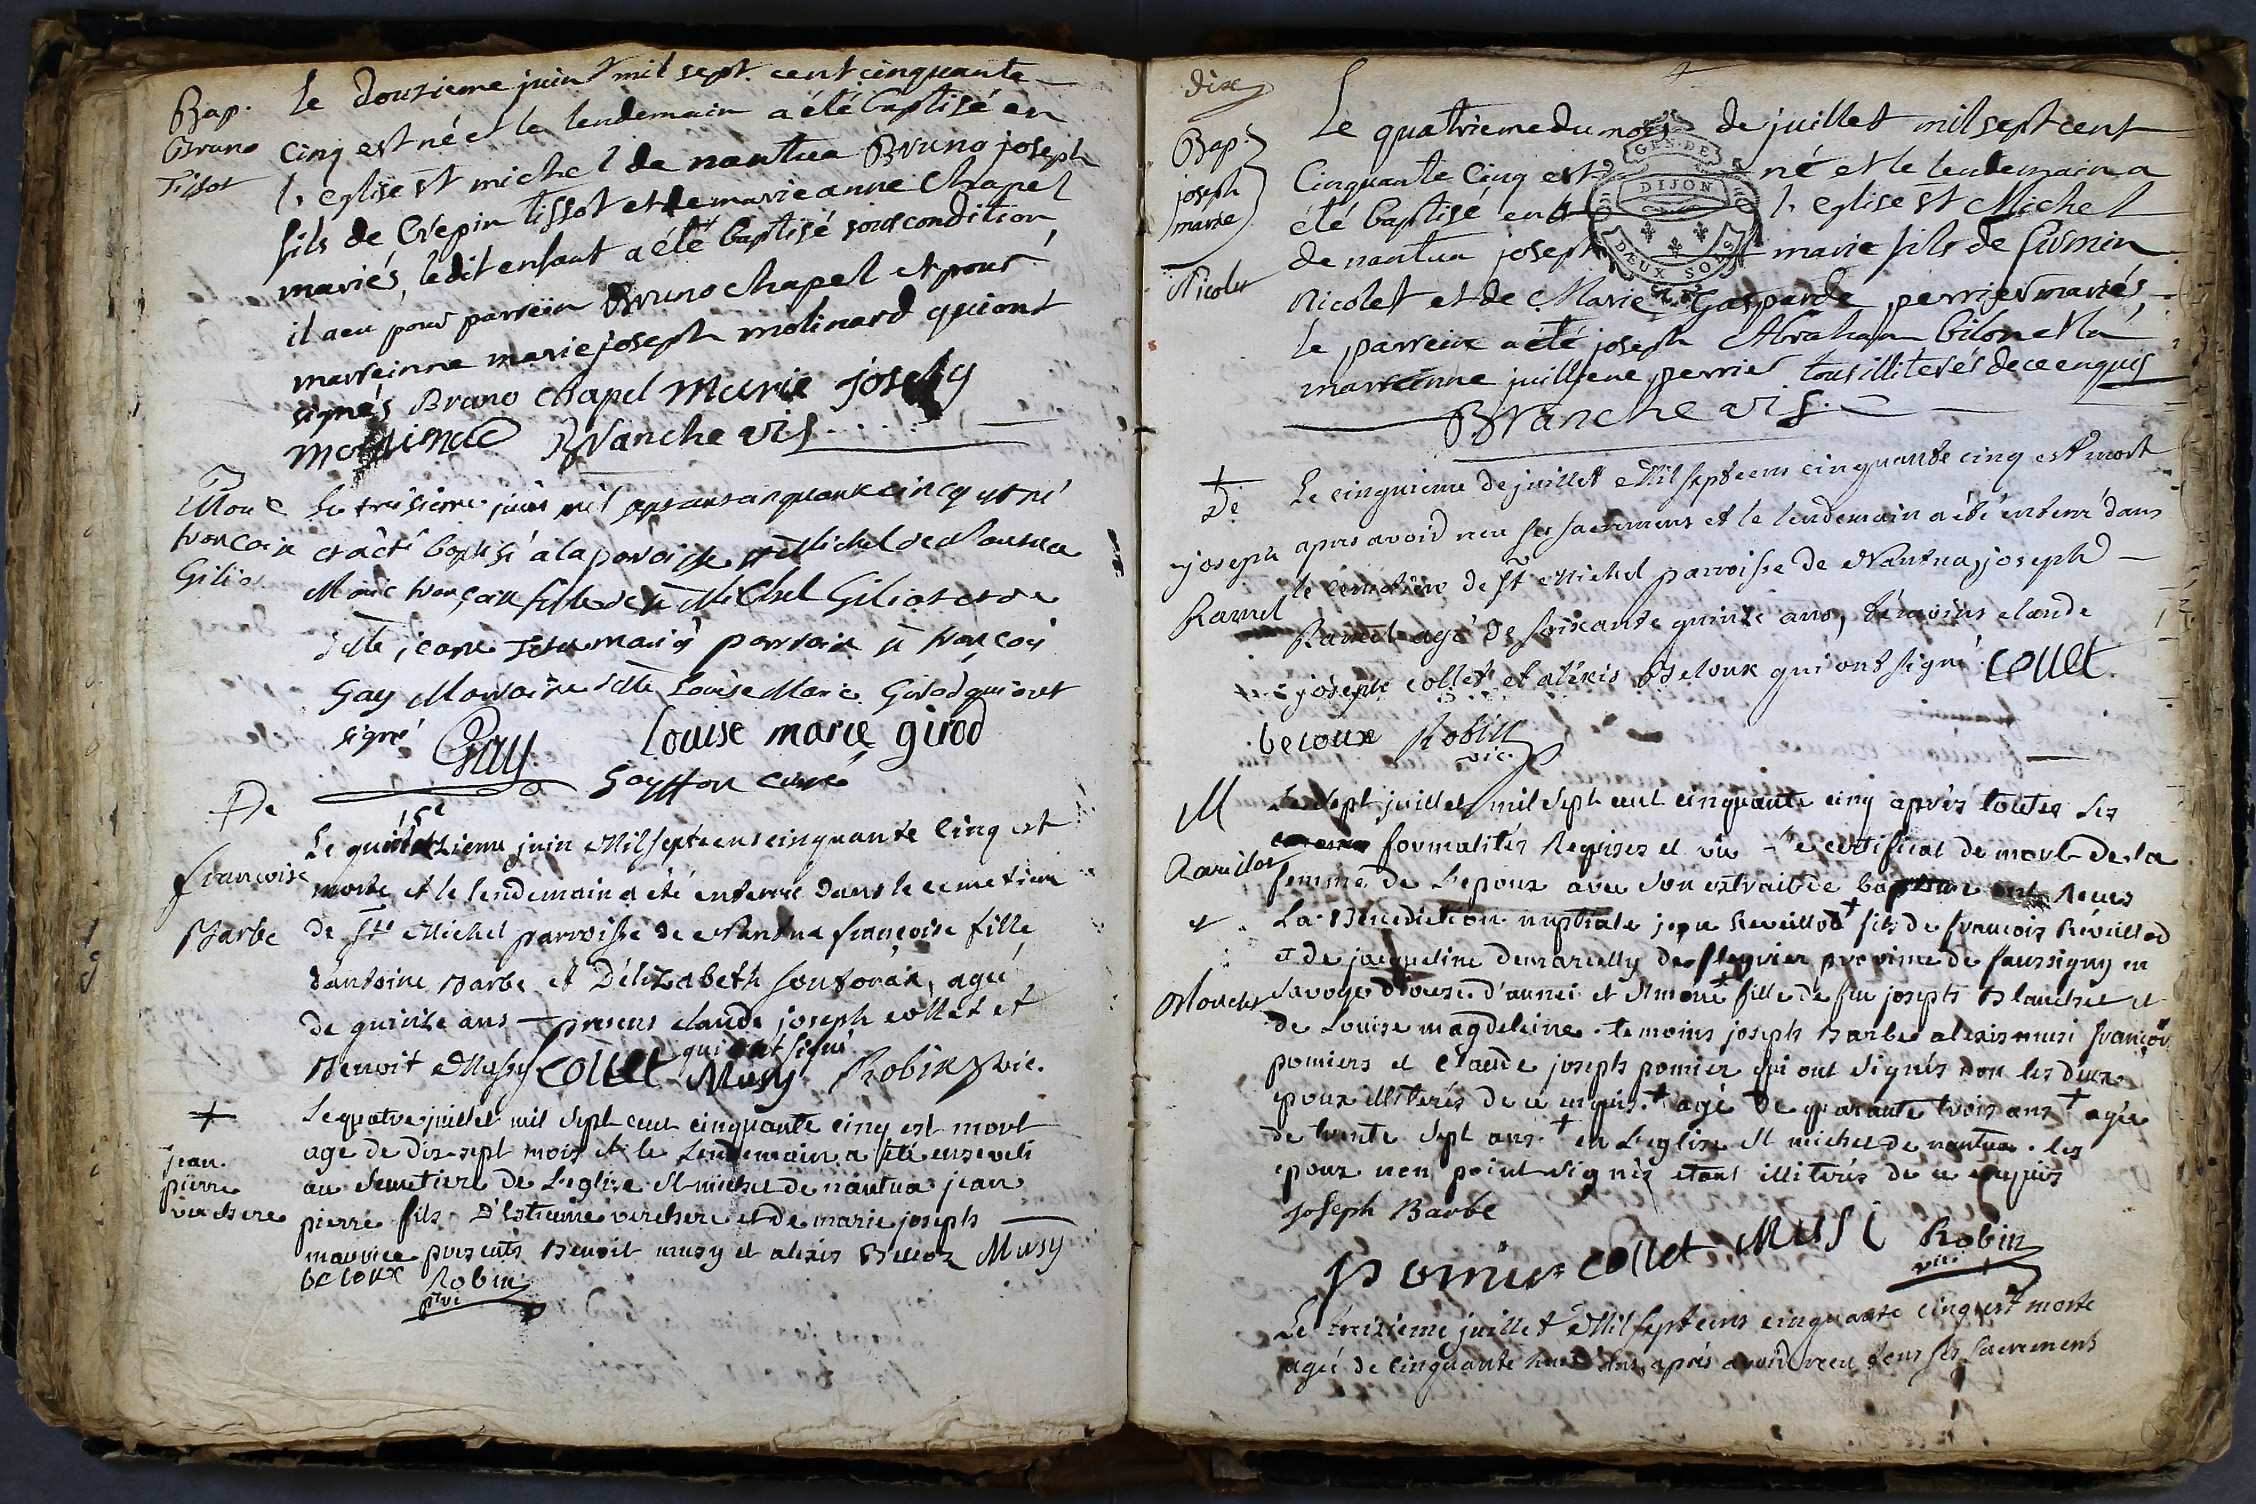 Bap.
Bruno
Tissot
Le douzieme juin mil sept cent cinquante
cinq est né et le lendemain a été baptisé en
l'eglise st michel de nantua Bruno joseph
fils de Crépin tissot et de marie anne Chapel
mariés, ledit enfant a été baptisé sous condition
il a eu pour parrein Bruno chapel et pour
marreinne marie joseph molinard qui ont
signés Bruno Chapel Marie joseph
Branche vis
francoise
Gilio
et a été baptisé a la paroisse st Michel de Nantua
Marie françoise fille de sr Michel Giliot et de
dlle jeane mariés parrain sr françois
Gay Marraine dlle Louise Marie Girod qui ont
signé Gay Louise marie girod
curé
De
francoise
Barbe
Le quinzieme juin Mil sept cens cinquante Cinq est
morte et le lendemain a été enterrée dans le cemetiere
de St Michel parroisse de Nantua françoise fille
d'antoine Barbe et D'élizabeth agée
de quinze ans presens claude joseph collet et
Benoit Musy qui ont signé
Collet Musy Robin vic.
jean
pierre
verchere
Le quatre juillet mil sept cent cinquante cinq est mort
age de dix sept mois et le Lendemain a été enseveli
au semetiere de L'eglise st michel de nantua jean
pierre fils D'Estienne verchere et de marie joseph
maurice presents Benoit musy et alexis Beloux Musy
beloux Robin
dix
Bap.
joseph
marie
Nicolet
Le quatrieme du mois de juillet mil sept cent
Cinquante Cinq est né et le lendemain a
été baptisé en l'eglise st Michel
de nantua joseph marie fils de firmin
Nicolet et de Marie Gasparde perrier mariés,
le parrein a été joseph Abraham et la
marreinne perrier tous illiterés de ce enquis
Branche vis.
GEN. DE
DIJON
DEUX SOLS
De
joseph
Ravinel
Le cinquieme de juillet Mil sept cens cinquante cinq est mort
apres avoir receu ses sacremens et le lendemain a été enterré dans
le cemetiere de St Michel parroisse de Nantua, joseph
agé de soixante quinze ans, témoins claude
joseph collet et aléxis Beloux qui ont signé. Collet
beloux Robin
vic.
M
et
Le sept juillet mil sept cent cinquante cinq après toutes les
formalités Requises et vu le certificat de mort de la
femme de L'epoux avec son extrait de baptême ont Reçus
La Benediction nuptiale fils de francois Réveillod
et de jacqueline province de faussigny en
Savoye diocese d'annei et fille de feu joseph et
de Louise magdeleine. temoins joseph Barbe alexis musi françois
pomiers et Claude joseph pomier qui ont signés non les deux
epoux illiterés de ce enquis. agé de quarante trois ans agée
de trente sept ans. en L'eglise st michel de nantua. les
epoux non point signés etant illiterés de ce enquis
Joseph Barbe
pomier Collet MUSI Robin
vic.
Le treizieme juillet Mil sept cens cinquante cinq est morte
agée de cinquante ans, aprés avoir receu tous ses sacremens